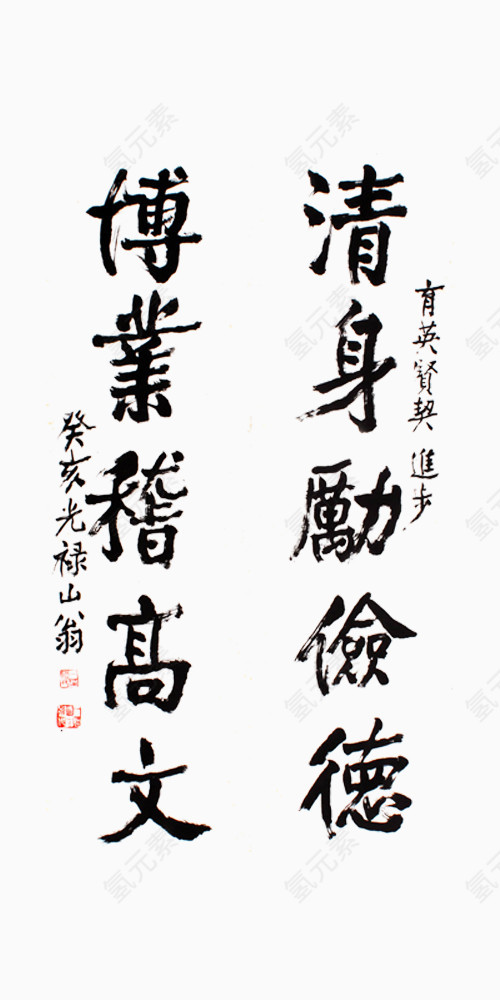 育英賢契進步
清身勵儉德
博業稽高文
癸亥光禄山翁
氢元素